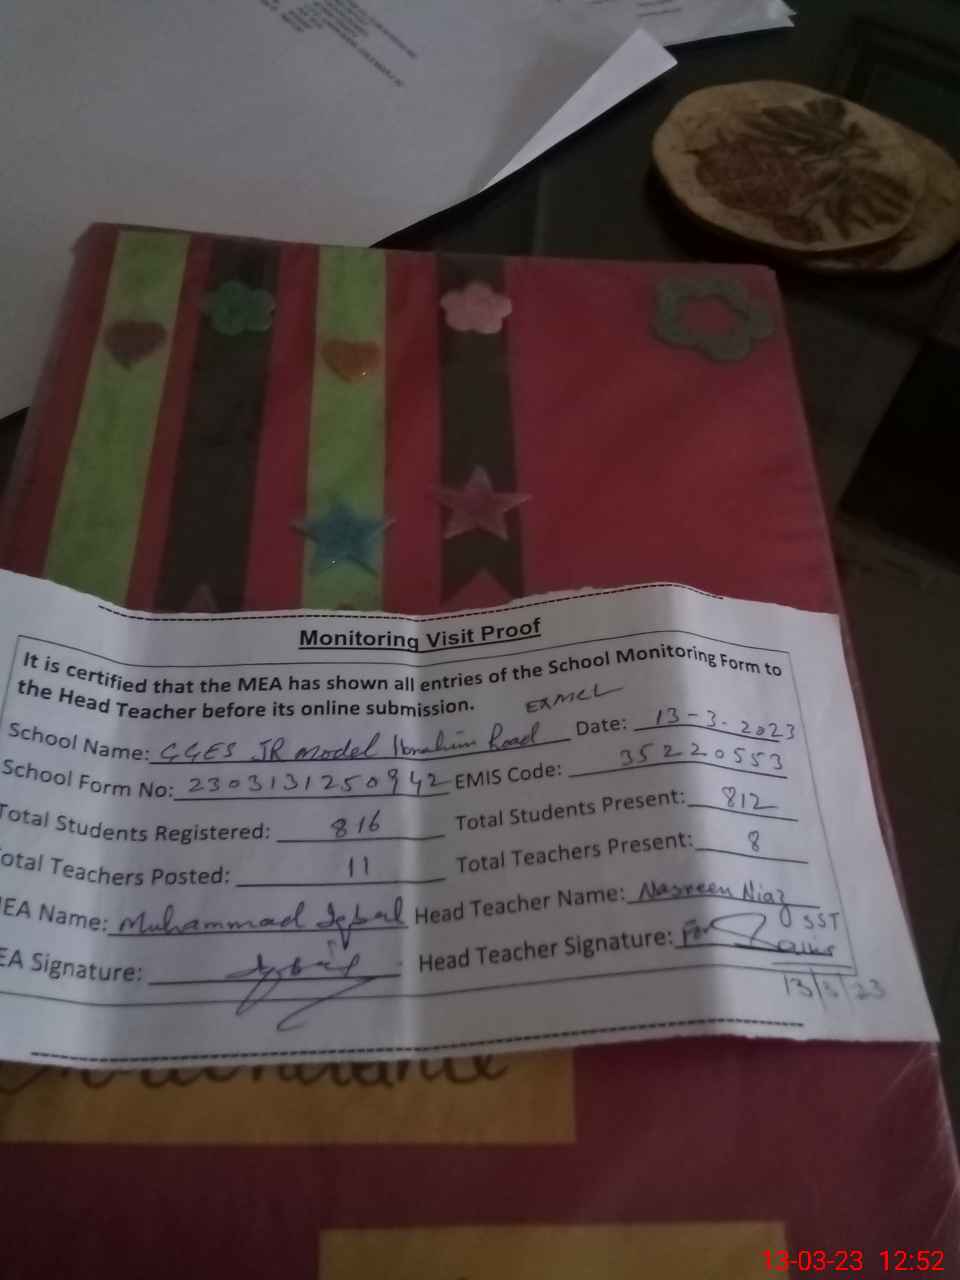 Monitoring Visit Proof
It is certified that the MEA has shown all entries of the School Monitoring Form to
the Head Teacher before its online submission.
School Name: GGES JR Model Ibrahim Road Date: 13-3-2023
School Form No: 230313125 0942 EMIS Code: 35220553
Total Students Registered: 816 Total Students Present: 812
Total Teachers Posted: 11 Total Teachers Present: 8
MEA Name: Muhammad Iqbal Head Teacher Name: Nasreen Niaz
SST
EA Signature: Head Teacher Signature: For
13/3/23
13-03-23 12:52